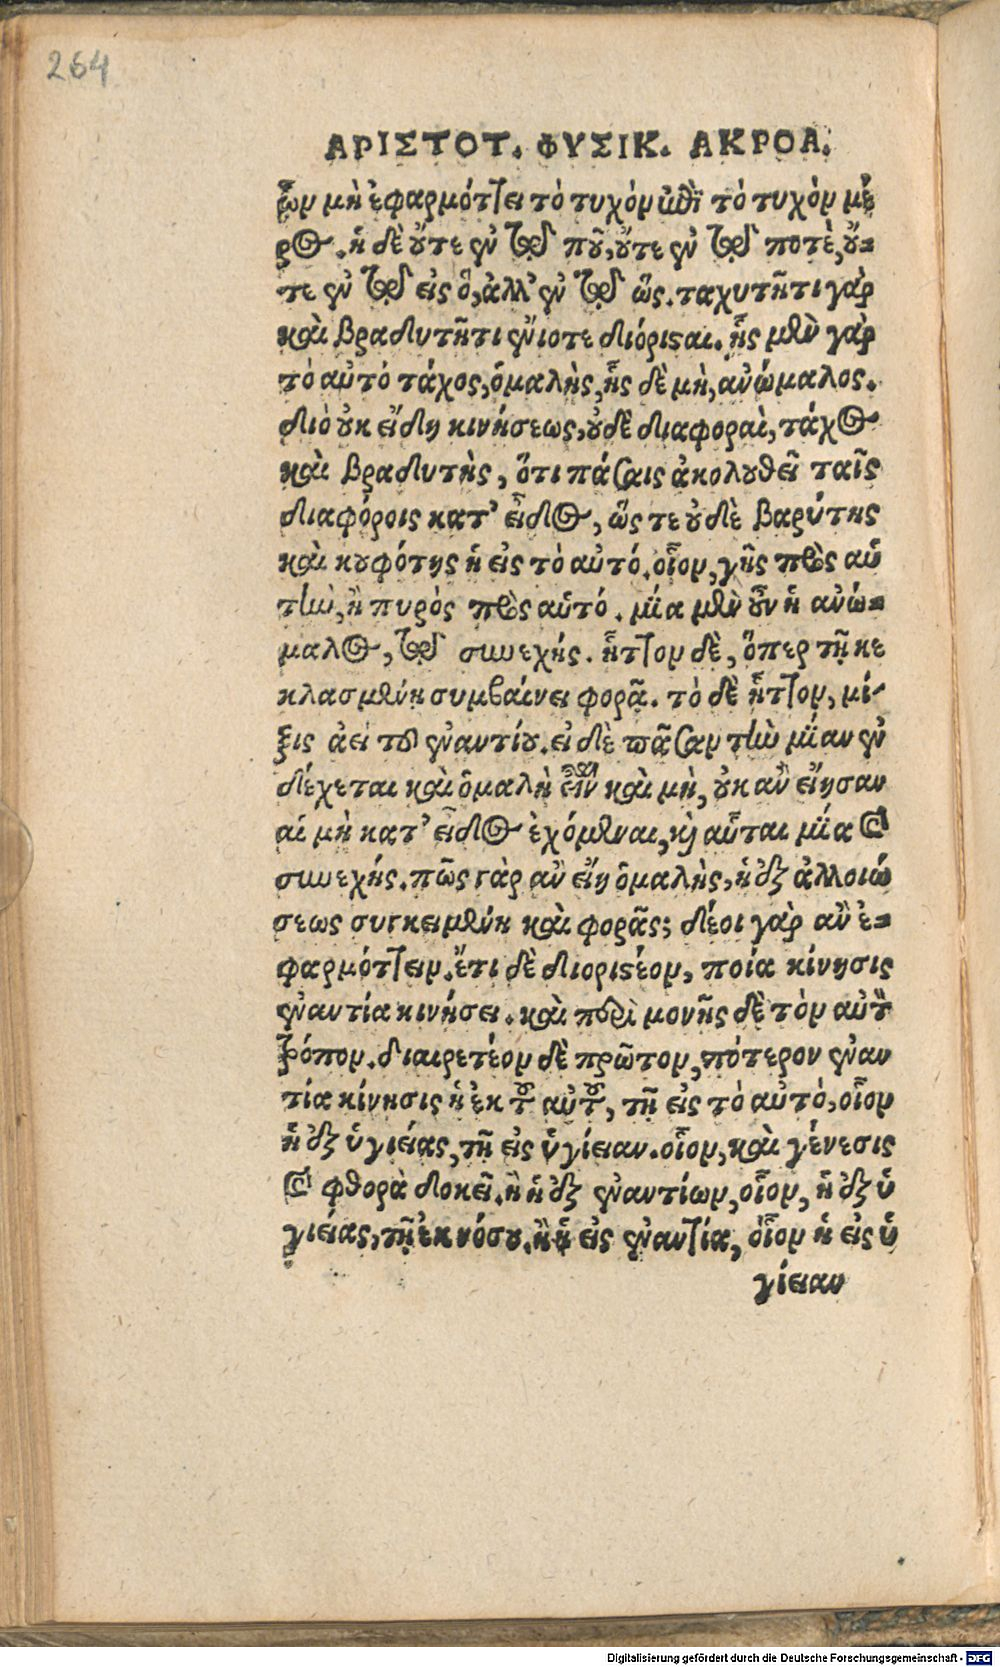 264
ΑΡΙΣΤΟΤ. ΦΥΣΙΚ. ΑΚΡΟΑ.
ὧν μὴ ἐφαρμόττει τὸ τυχὸν ἐπὶ τὸ τυχὸν μέ
ρος. ἡ δὲ οὔτε ἐν τῷ ποῦ, οὔτε ἐν τῷ ποτὲ, οὔ-
τε ἐν τῷ εἰς ὃ, ἀλλ' ἐν τῷ ὥς. ταχυτῆτι γὰρ
καὶ βραδυτῆτι ἐνίοτε διόρισαι. ἧς μὲν γὰρ
τὸ αὐτὸ τάχος, ὁμαλὴς, ἧς δὲ μὴ, ἀνώμαλος.
διὸ οὐκ εἴδη κινήσεως, οὐδὲ διαφοραὶ, τάχος
καὶ βραδυτὴς, ὅτι πάσαις ἀκολουθεῖ ταῖς
διαφόροις κατ' εἶδος, ὥς τε οὐδὲ βαρύτης
καὶ κουφότης ἡ εἰς τὸ αὐτό. οἷον, γῆς πρὸς αὑ
τὴν, ἢ πυρὸς πρὸς αὑτό. μία μὲν οὖν ἡ ἀνώ-
μαλος, τῷ συνεχής. ἧττον δὲ, ὅπερ τῇ κε
κλασμένη συμβαίνει φορᾷ. τὸ δὲ ἧττον, μί-
ξις ἀεὶ τοῦ ἐναντίου. εἰ δὲ πᾶσαν τὴν μίαν ἐν
δέχεται καὶ ὁμαλὴ εἶναι καὶ μὴ, οὐκ ἂν εἴησαν
αἱ μὴ κατ' εἶδος ἐχόμεναι, καὶ αὗται μία καὶ
συνεχής. πῶς γὰρ ἂν εἴη ὁμαλὴς, ἡ ἐξ ἀλλοιώ
σεως συγκειμένη καὶ φορᾶς; δέοι γὰρ ἂν ἐ-
φαρμόττειν. ἔτι δὲ διοριστέον, ποία κίνησις
ἐναντία κινήσει. καὶ περὶ μονῆς δὲ τὸν αὐτὸν
τρόπον. διαιρετέον δὲ πρῶτον, πότερον ἐναν
τία κίνησις ἡ ἐκ τοῦ αὐτοῦ, τῇ εἰς τὸ αὐτὸ, οἷον
ἡ ἐξ ὑγιείας, τῇ εἰς ὑγίειαν. οἷον, καὶ γένεσις
καὶ φθορὰ δοκεῖ. ἢ ἡ ἐξ ἐναντίων, οἷον, ἡ ἐξ ὑ
γιείας, τῇ ἐκ νόσου. ἢ ἡ εἰς ἐναντία, οἷον ἡ εἰς ὑ
γίειαν
Digitalisierung gefördert durch die Deutsche Forschungsgemeinschaft - DFG